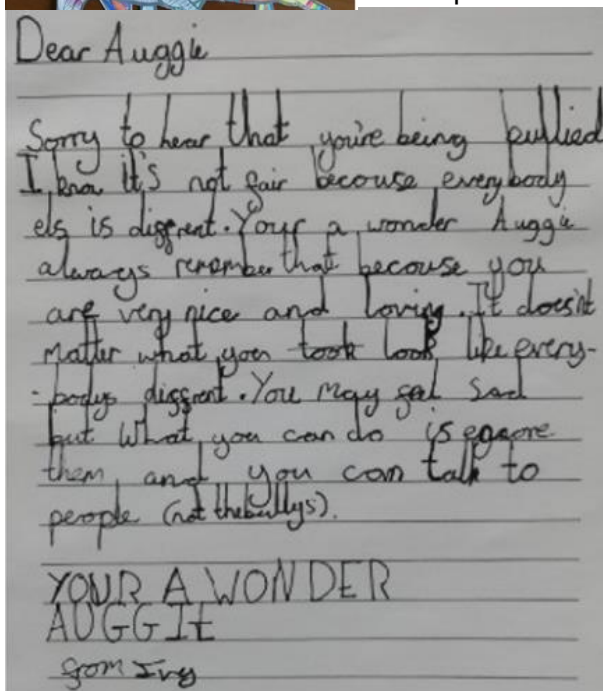 Dear Auggie
Sorry to hear that you're being bullied
I know it's not fair becouse everybody
els is diffrent. Your a wonder Auggie
always remember that becouse you
are very nice and loving. It doesn't
Matter what you took look like every-
-bodys diffrent. You May feel sad
but what you can do is egnore
them and you can talk to
people (not the bullys).
YOUR A WONDER
AUGGIE
from Ivy